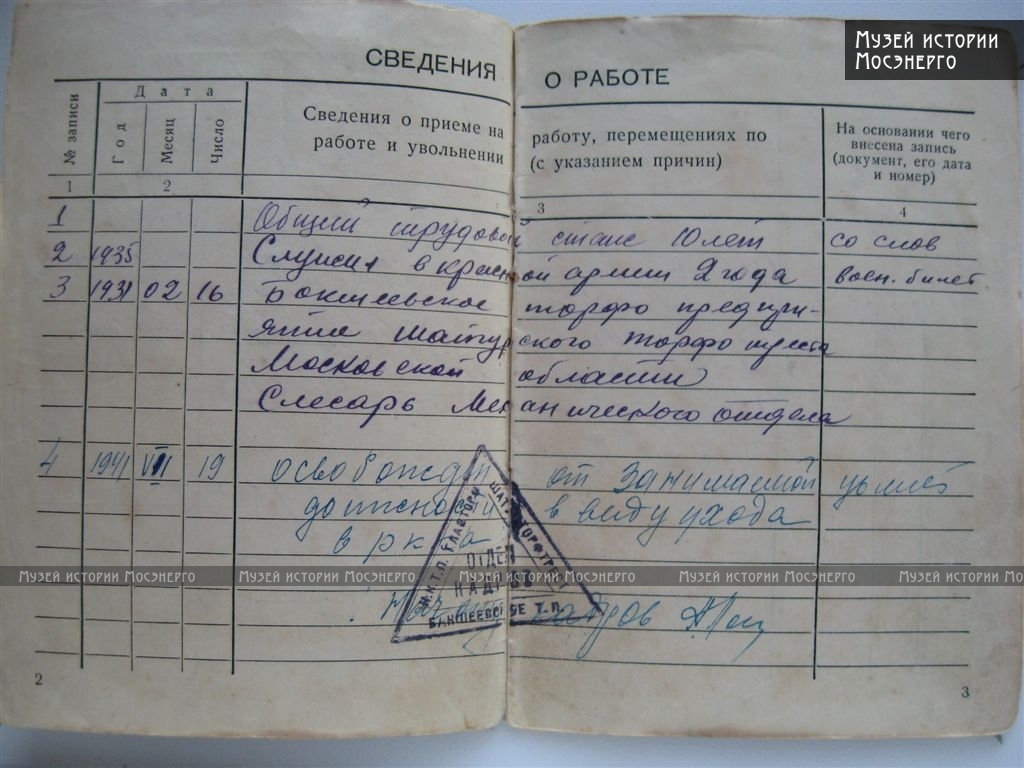 Музей истории
Мосэнерго
СВЕДЕНИЯ О РАБОТЕ
№ записи
Дата
Год
Месяц
Число
Сведения о приеме на работу, перемещениях по
работе и увольнении (с указанием причин)
На основании чего
внесена запись
(документ, его дата
и номер)
1 2 3 4
1 Общий трудовой стаж 10 лет со слов
2 1935 Служил в красной армии 2 года воен. билет
3 1931 02 16 Бакшеевское торфо предпри-
ятие Шатурского торфо треста
Московской области
Слесарь Механического отдела
4 1941 VII 19 освобожден от занимаемой
должности в виду ухода
в ркка
Н.К.Т.П. ГЛАВТОРФ
ШАТ. ТОРФТРЕСТ
ОТДЕЛ
КАДРОВ
БАКШЕЕВСКОЕ Т. П.
Музей истории Мосэнерго Музей истории Мосэнерго Музей истории Мосэнерго
кадров
2
3